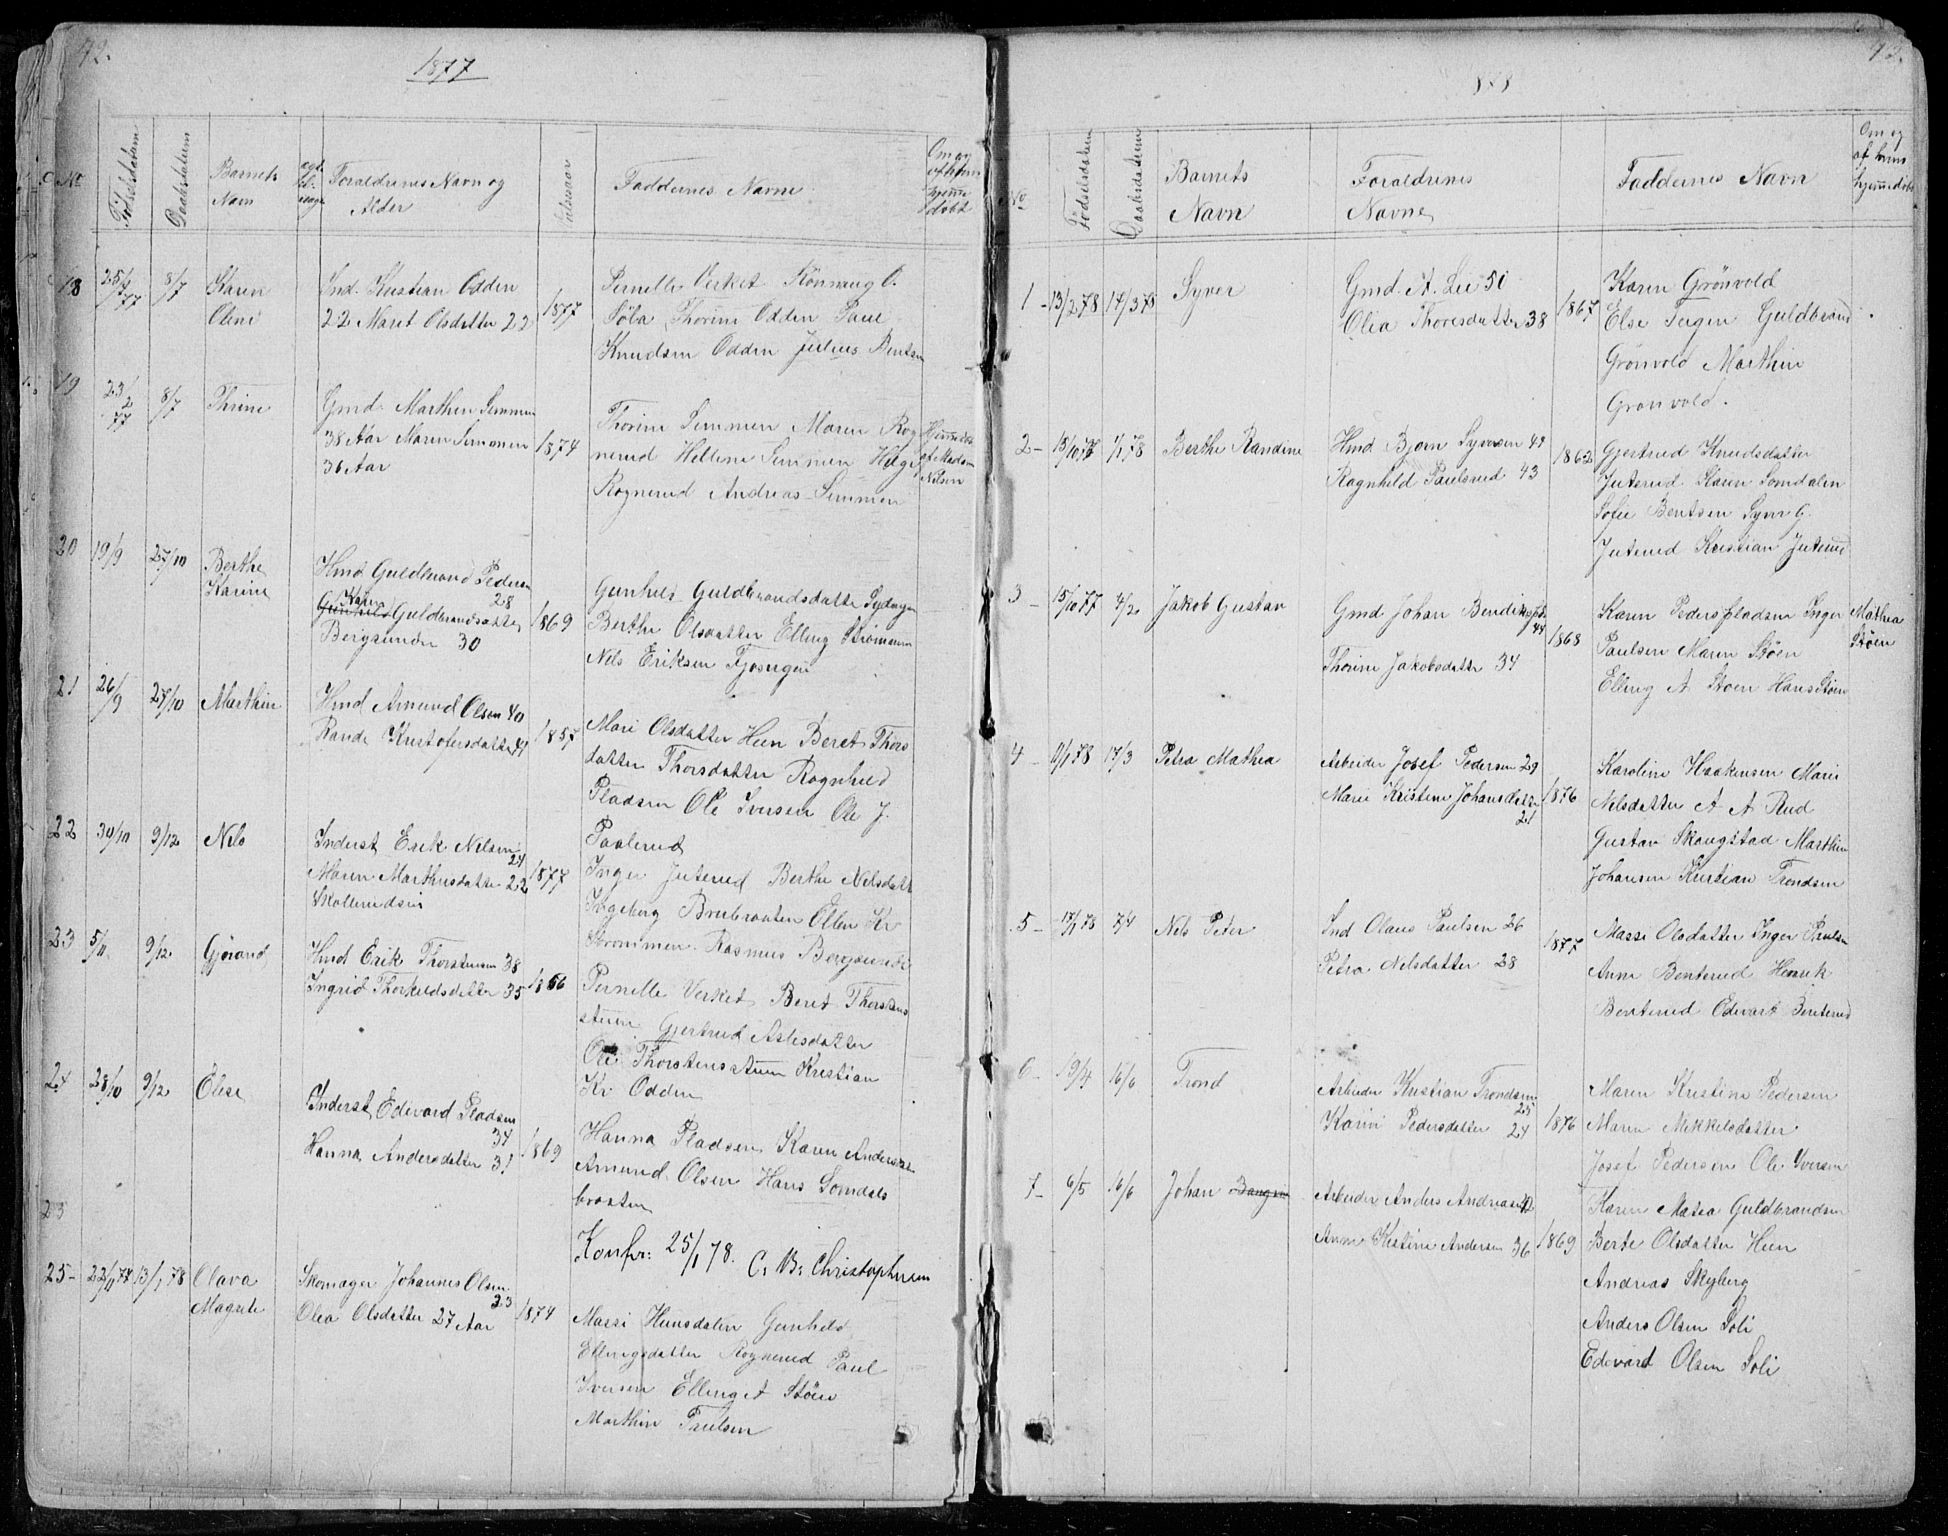 42.
1877
No
Fødselsdatum
Daabsdatum
Barnets
Navn
Forældrenes Navn og
Alder
Faddernes Navne
Om og
hjemme
døbt
18
8/7
Karen
Oline
Ind. Kristian Odden
22 Maret Olsdatter 22
1877
Pernelle Verket Rönnaug O.
Thorine Odden Paul
Knudsen Odden Julius Bentsen
19
23/2
77
8/7
Thrine
Gmd. Marthin Simmen
38 Aar Maren Simmen
36 Aar
1874
Thorine Simmen Maren Rog
nerud Hellene Simmen Helge
Rognerud Andreas Simmen
Hjemmedøbt
af Madam
Nilsen
20
19/9
27/10
Berthe
Karine
Hmd Guldbrand Pedersen
28
Karen
Gunhild Guldbrandsdatter
Bergsunde 30
1869
Gunhild Guldbrandsdatter
Berthe Olsdatter Elling Strömmen
Nils Eriksen
21
26/9
27/10
Marthin
Hmd Amund Olsen 40
Rande Kristofersdatter 41
1857
Mari Olsdatter Hen Beret Thors
datter Thorsdatter Ragnhild
Pladsen Ole Iversen Ole J.
Paulerud
22
30/10
9/12
Nils
Inderst Erik Nilsen
24
Maren Marthinsdatter 22
1877
Inger Juterud Berthe Nilsdatt
Ingeborg Brubraaten Ellen Kr
Strømmen Rasmus Bergsunde
23
5/11
9/12
Gjørand
Hmd Erik Thorstensen 38
Ingrid Thorkeldsdatter 35
1866
Pernelle Verket Beret Thorstens
stuen Gjertrud Aslesdatter
Ole Thorstensstuen Kristian
Kr Odden
24
28/10
9/12
Elise
Inderst Edevard Pladsen
34
Hanna Andersdatter 31
1869
Hanna Pladsen Karen Anders
Amund Olsen Hans Somdals
braaten
25
Konfr: 25/1 78. C. B. Christophersen
25-
22/11 77
13/1 78
Olava
Magrete
Skomager Johannes Olsen
23
Olea Olsdatter 27 Aar
1874
Massi Hunsdalen Gunhild
Ellingsdatter Rognerud Paul
Iversen Elling Stöen
Marthin Paulsen
No
Fødselsdatum
Daabsdatum
Barnets
Navn
Forældrenes
Navne
Faddernes Navn
Om og
af hvem
hjemmedøbt
1 -
13/2 78
17/3 78
Syver
Gmd. A. Lie 50
Olea Thoresdatter 38
1867
Karen Grönvold
Else Teigen Guldbrand
Grönvold Marthin
Grønvold.
2 -
15/10 77
1/1 78
Berthe Randine
Hmd Bjørn Syversen 49
Ragnhild Paulsrud 43
1862
Gjertrud Knudsdatter
Juterud Karen Somdalen
Sofie Bentsen Syver G.
Juterud Kristian Juterud
3 -
15/10 77
4/2
Jakob Gustav
Gmd Johan
44
Thorine Jakobsdatter 34
1868
Karen Pederspladsen Inger
Paulsen Maren Stöen
Elling A. Stöen Hans Stöen
Mathea
Stöen
4 -
11/1 78
17/3
Petra Mathea
Arbeider Josef Pedersen 29
Marie Kristine Johansdatter
21
1876
Karoline Haakensen Marie
Nilsdatter A A Rud
Gustav Skougstad Marthin
Johansen Kristian Trondsen
5 -
17/1 78
7/4
Nils Peter
Ind Olaus Paulsen 26
Petra Nilsdatter 28
1877
Massi Olsdatter Inger Paulsen
Anne Benterud Henrik
Benterud Edevart Benterud
6 -
19/4
16/6
Trond
Arbeider Kristian Trondsen
25
Karine Pedersdatter 24
1876
Maren Kristine Pedersen
Maren Mikkelsdatter
Josef Pedersen Ole Iversen
7 -
6/5
16/6
Johan
Arbeider Anders Andreasen 42
Anne Kistine Andersen 36
1869
Karen Matea Guldbrandsen
Berte Olsdatter Hen
Andreas Skyberg
Anders Olsen Soli
Edevard Olsen Soli